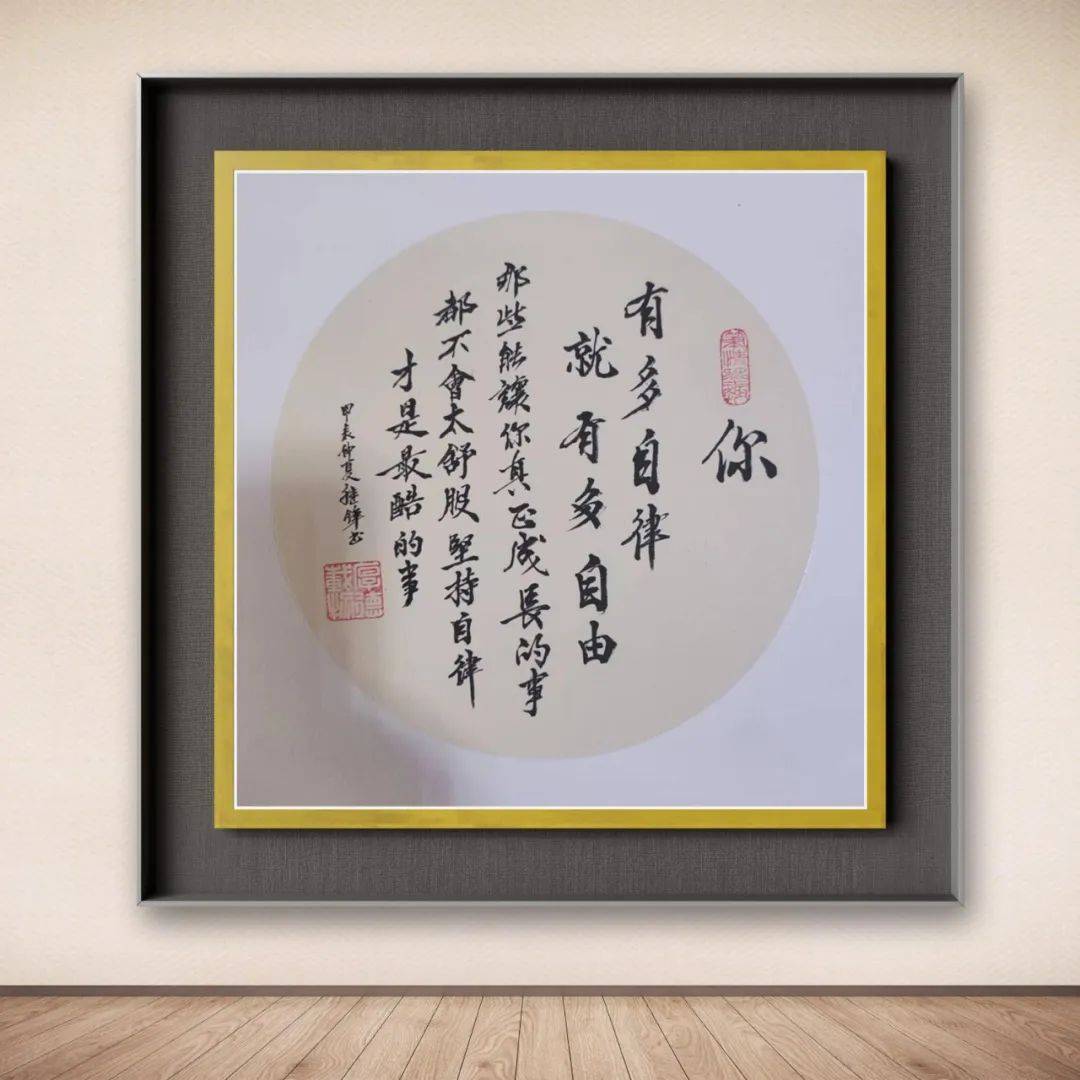 你
有多自律
就有多自由
那些能讓你真正成長的事
都不會太舒服堅持自律
才是最酷的事
甲辰仲夏
厚德載物